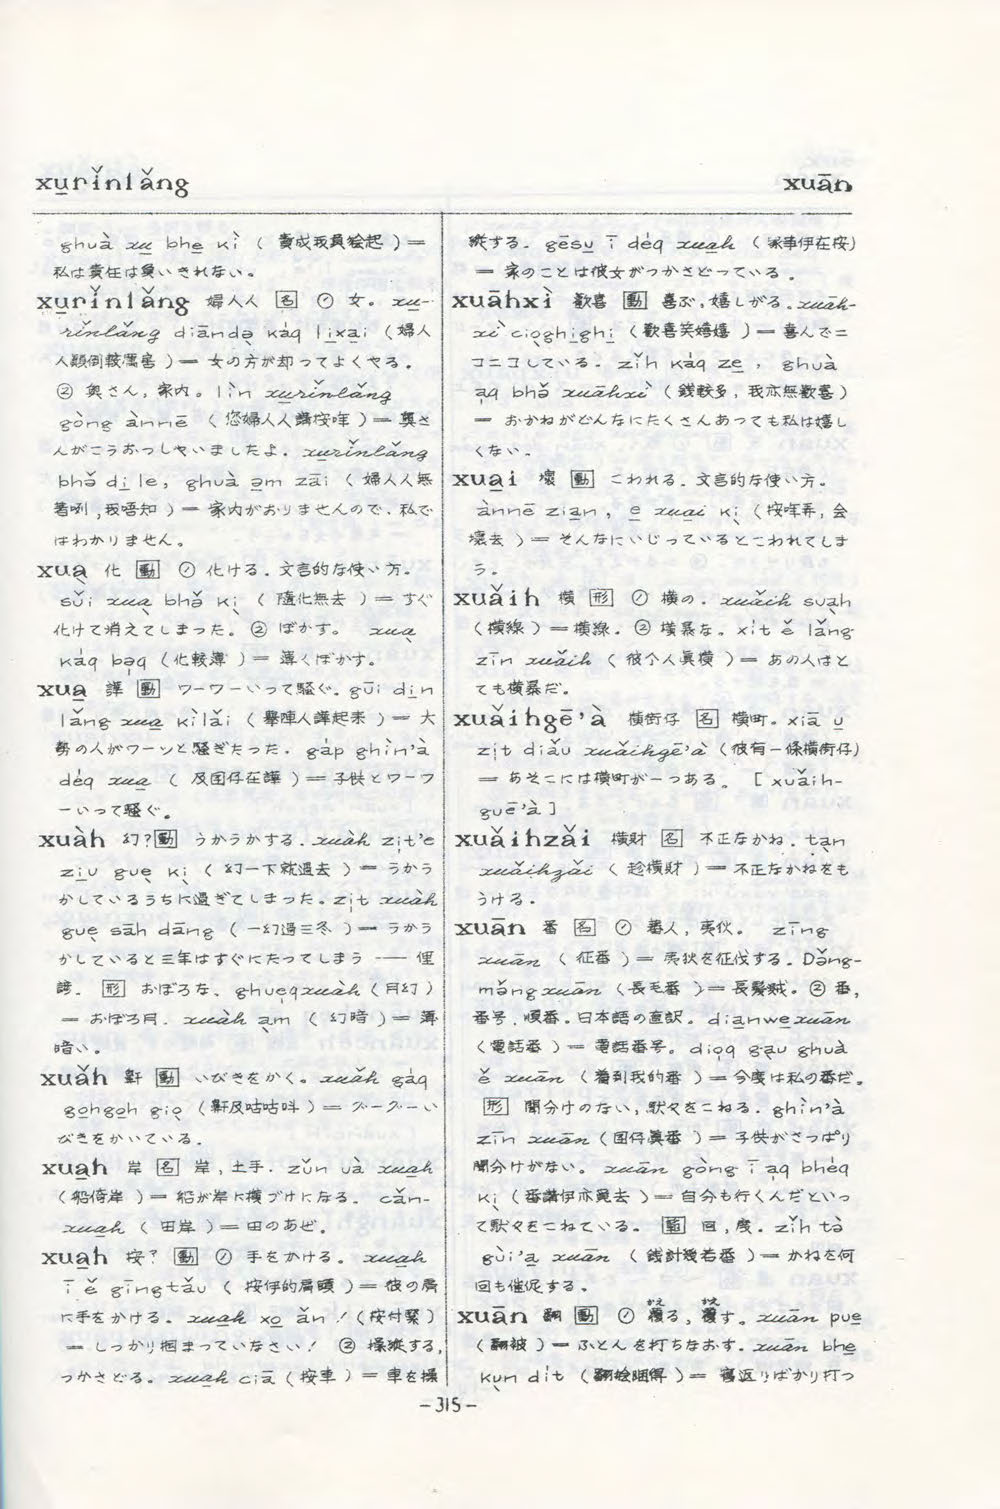 xu̱rǐnlǎng
xuān
ghuà xu̱ bhe̱ kì ( 責成我負𣍐起 ) =
私は責任は負いきれない。
xu̱rǐnlǎng 婦人人 [名] ① 女。 xu̱-
rǐnlǎng diāndə̱ káq li̱xa̱i ( 婦人
人顚倒較厲害 ) = 女の方が却ってよくやる。
② 奥さん, 家内。 lìn xu̱rǐnlǎng
gòng ànnē ( 您婦人人講按哖 ) = 奥さ
んがこうおっしゃいましたよ。 xu̱rǐnlǎng
bhə̌ di̱ le, ghuà a̱m zāi ( 婦人人無
著咧, 我唔知 ) = 家内がおりませんので、私で
はわかりません。
xua̱ 化 [動] ① 化ける。文言的な使い方。
sǔi xua̱ bhə̌ kị ( 隨化無去 ) = すぐ
化けて消えてしまった。 ② ぼかす。 xua̱
káq bəq (化較薄 ) = 薄くぼかす。
xua̱ 譁 [動] ワーワーいって騒ぐ。 gūi di̱n
lǎng xua̱ kìlǎi ( 擧陣人譁起來 ) = 大
勢の人がワーンと騒ぎたった。 gáp ghìn'à
déq xua̱ ( 及囝仔在譁 ) = 子供とワーワ
ーいって騒ぐ。
xuàh 幻? [動] うかうかする。 xuàh zịt'e
zi̱u guẹ kị ( 幻一下就過去 ) = うかう
かしているうちに過ぎてしまった。 zịt xuàh
guẹ sāh dāng ( 一幻過三冬 ) = うかう
かしていると三年はすぐにたってしまう —— 俚
諺。 [形] おぼろな。 ghuẹqxuàh ( 月幻 )
= おぼろ月。 xuàh ạm ( 幻暗 ) = 薄
暗い。
xuǎh 鼾 [動] いびきをかく。 xuǎh gáq
go̱hgo̱h giọ ( 鼾及咕咕叫 ) = グーグーい
びきをかいている。
xua̱h 岸 [名] 岸, 土手。 zǔn uà xua̱h
( 船倚岸 ) = 船が岸に横づけになる。 cǎn-
xua̱h ( 田岸 ) = 田のあぜ。
xua̱h 按? [動] ① 手をかける。 xua̱h
ī ě gīngtǎu ( 按伊的肩頭 ) = 彼の肩
に手をかける。 xua̱h xo̱ ǎn ! ( 按付緊 )
= しっかり掴まっていなさい! ② 操縦する,
つかさどる。 xua̱h ciā ( 按車 ) = 車を操
縦する。 gēsu̱ ī déq xua̱h ( 家事伊在按)
= 家のことは彼女がつかさどっている。
xuāhxì 歡喜 [動] 喜ぶ, 嬉しがる。 xuāh-
xì ciọghighi ( 歡喜笑嬉嬉 ) = 喜んでニ
コニコしている。 zǐh káq ze̱ , ghuà
aq bhə̌ xuāhxì ( 錢較多, 我亦無歡喜 )
= おかねがどんなにたくさんあっても私は嬉し
くない。
xua̱i 壞 [動] こわれる。文言的な使い方。
ànnē zia̱n , e̱ xua̱i kị ( 按哖弄, 会
壞去 ) = そんなにいじっているとこわれてしま
う。
xuǎih 横 [形] ① 横の。 xuǎih suạh
( 横線 ) = 横線。 ② 横暴な。 xit ě lǎng
zīn xuǎih ( 彼个人眞横 ) = あの人はと
ても横暴だ。
xuǎihgē'à 横街仔 [名] 横町。 xiā u̱
zịt diǎu xuǎihgē'à ( 彼有一條横街仔)
= あそこには横町が一つある。 [ xuǎih-
guē'à ]
xuǎihzǎi 横財 [名] 不正なかね。 tạn
xuǎihzǎi ( 趁横財 ) = 不正なかねをも
うける。
xuān 番 [名] ① 蕃人, 夷狄。 zīng
xuān ( 征番 ) = 夷狄を征伐する。 Dn̂g-
mǎng xuān ( 長毛番 ) = 長髪賊。 ② 番,
番号, 順番。日本語の直訳。 dia̱nwe̱xuān
( 電話番 ) = 電話番号。 diọq gạu ghuà
ě xuān ( 着到我的番 ) = 今度は私の番だ。
[形] 聞分けのない, 駄々をこねる。 ghìn'à
zīn xuān ( 囝仔眞番 ) = 子供がさっぱり
聞分けがない。 xuān gòng ī aq bhéq
kị ( 番講伊亦覓去 ) = 自分も行くんだといっ
て駄々をこねている。 [範] 回, 度。 zǐh tò
gùi'a̱ xuān ( 錢討幾若番 ) = かねを何
回も催促する。
xuān 翻 [動] ① 覆る, 覆す。 xuān pue̱
( 翻被 ) = ふとんを打ちなおす。 xuān bhe̱
kụn dit ( 翻𣍐睏得 ) = 寝返りばかり打つ
-315-